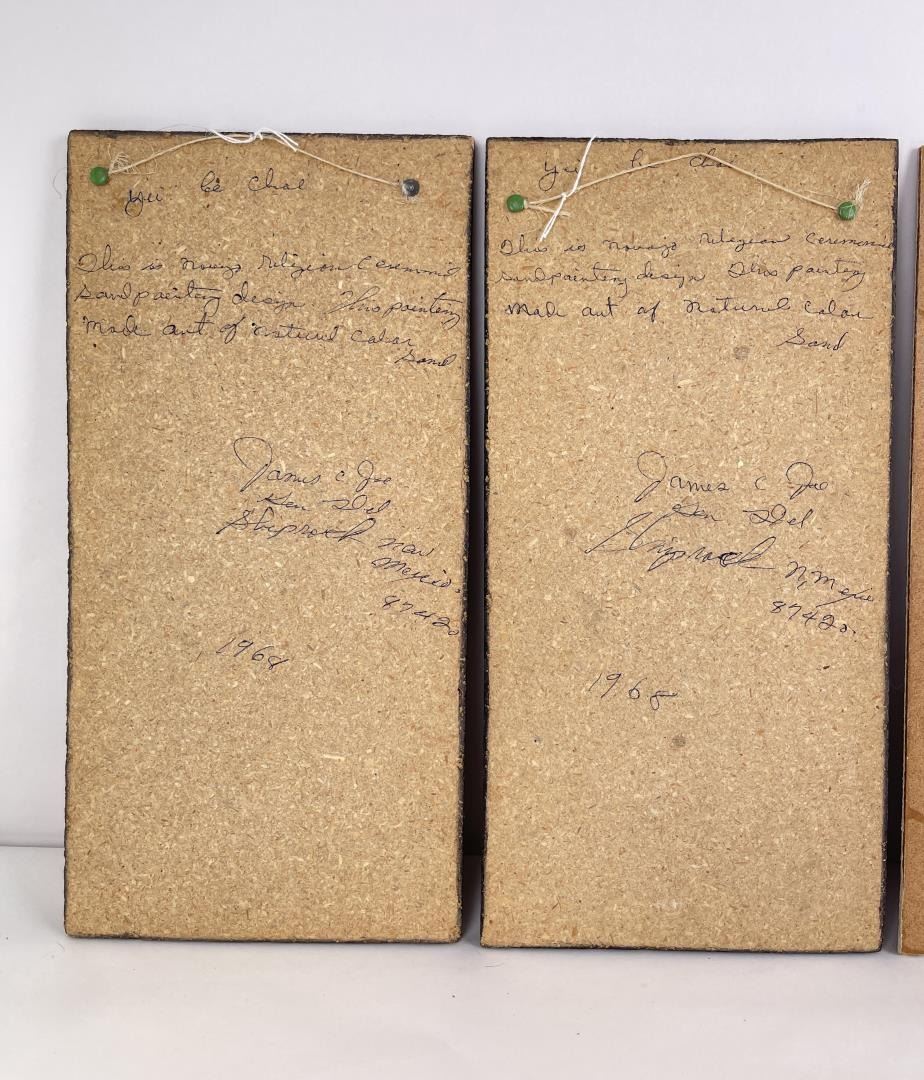 yei be chai
This is navajo religion ceremonie
sandpainting design This painting
made out of natural color
sand
James C Joe
Gen Del
Shiprock New
Mexico.
87420
1968
yei b chai
This is navajo religion ceremonie
sandpainting design This painting
made out of natural color
Sand
James C Joe
Gen Del
Shiprock N, Mexico
87420.
1968